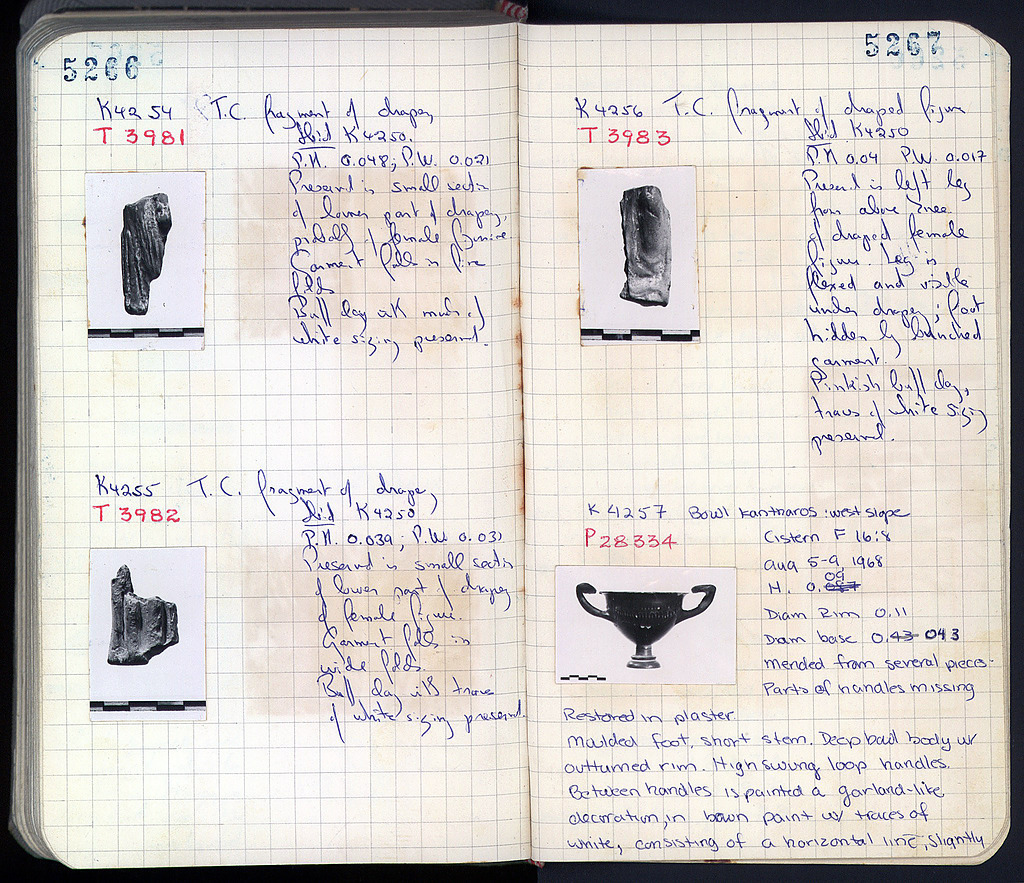 5266
K4254 T.C. fragment of drapery
T 3981 Ibid K4250.
P.H. 0.048; P.W. 0.021
Preserved is small section
of lower part of drapery,
probably of female figurine
Garment folds in fine
folds
Buff clay with much of
white sizing preserved.
K4255 T.C. fragment of drapery
T 3982 Ibid K4250
P.H. 0.039; P.W. 0.031
Preserved is small section
of lower part of drapery
of female figure.
Garment folds in
wide folds.
Buff clay with traces
of white sizing preserved.
5267
K4256 T.C. fragment of draped figure
T 3983 Ibid K4250
P.H 0.04 P.W. 0.017
Preserved is left leg
from above knee
of draped female
figure. Leg is
flexed and visible
under drapery; foot
hidden by bunched
garment.
Pinkish buff clay,
traces of white sizing
preserved.
K 4257 Bowl kantharos: west slope
P28334 Cistern F 16:8
Aug 5-9, 1968
H. 0.09
Diam Rim 0.11
Diam base 0.43 043
mended from several pieces.
Parts of handles missing
Restored in plaster.
Moulded foot, short stem. Deep ball body w/
outturned rim. High swung loop handles.
Between handles is painted a garland-like
decoration, in bown paint w/ traces of
white, consisting of a horizontal line, slightly